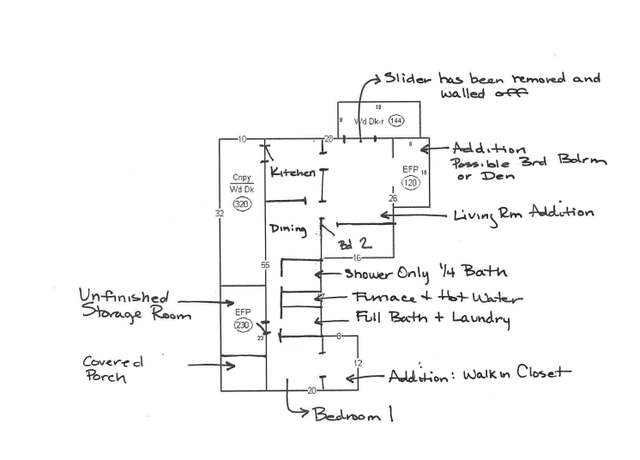 Slider has been removed and
walled off
10
9
Wd Dk-r 144
10
20
8
Addition
Possible 3rd Bdrm
or Den
Kitchen
Cnpy
Wd Dk
320
EFP
120
26
32
Living Rm Addition
Dining
Bd 2
55
16
Shower Only 1/4 Bath
Furnace + Hot Water
Full Bath + Laundry
Un-finished
Storage Room
EFP
230
23
6
12
Covered
Porch
Addition: Walk in Closet
20
Bedroom 1